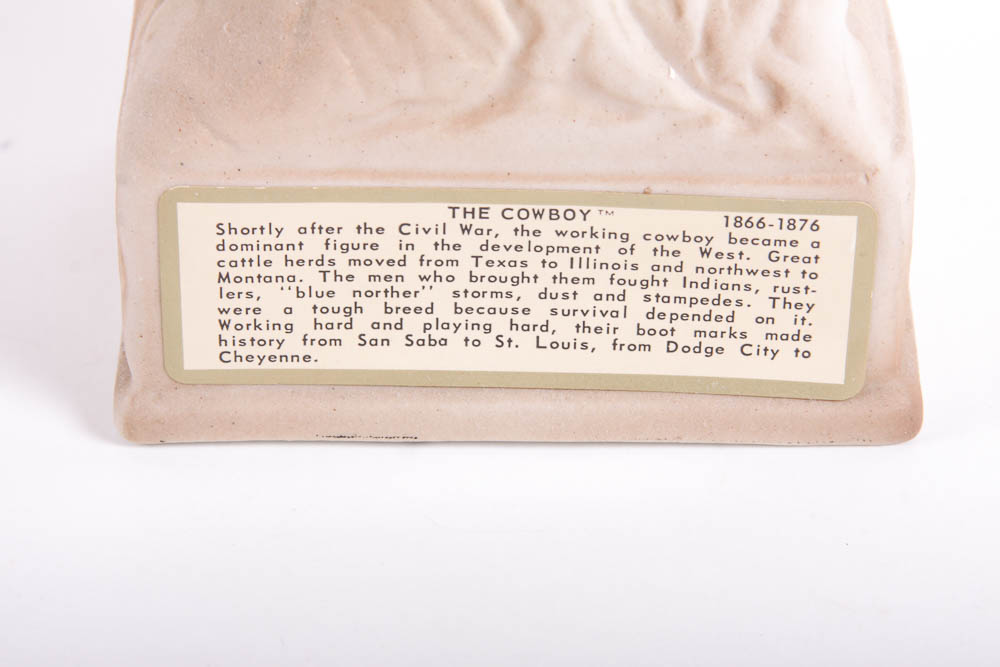 THE COWBOY™ 1866-1876
Shortly after the Civil War, the working cowboy became a
dominant figure in the development of the West. Great
cattle herds moved from Texas to Illinois and northwest to
Montana. The men who brought them fought Indians, rust-
lers, "blue norther" storms, dust and stampedes. They
were a tough breed because survival depended on it.
Working hard and playing hard, their boot marks made
history from San Saba to St. Louis, from Dodge City to
Cheyenne.